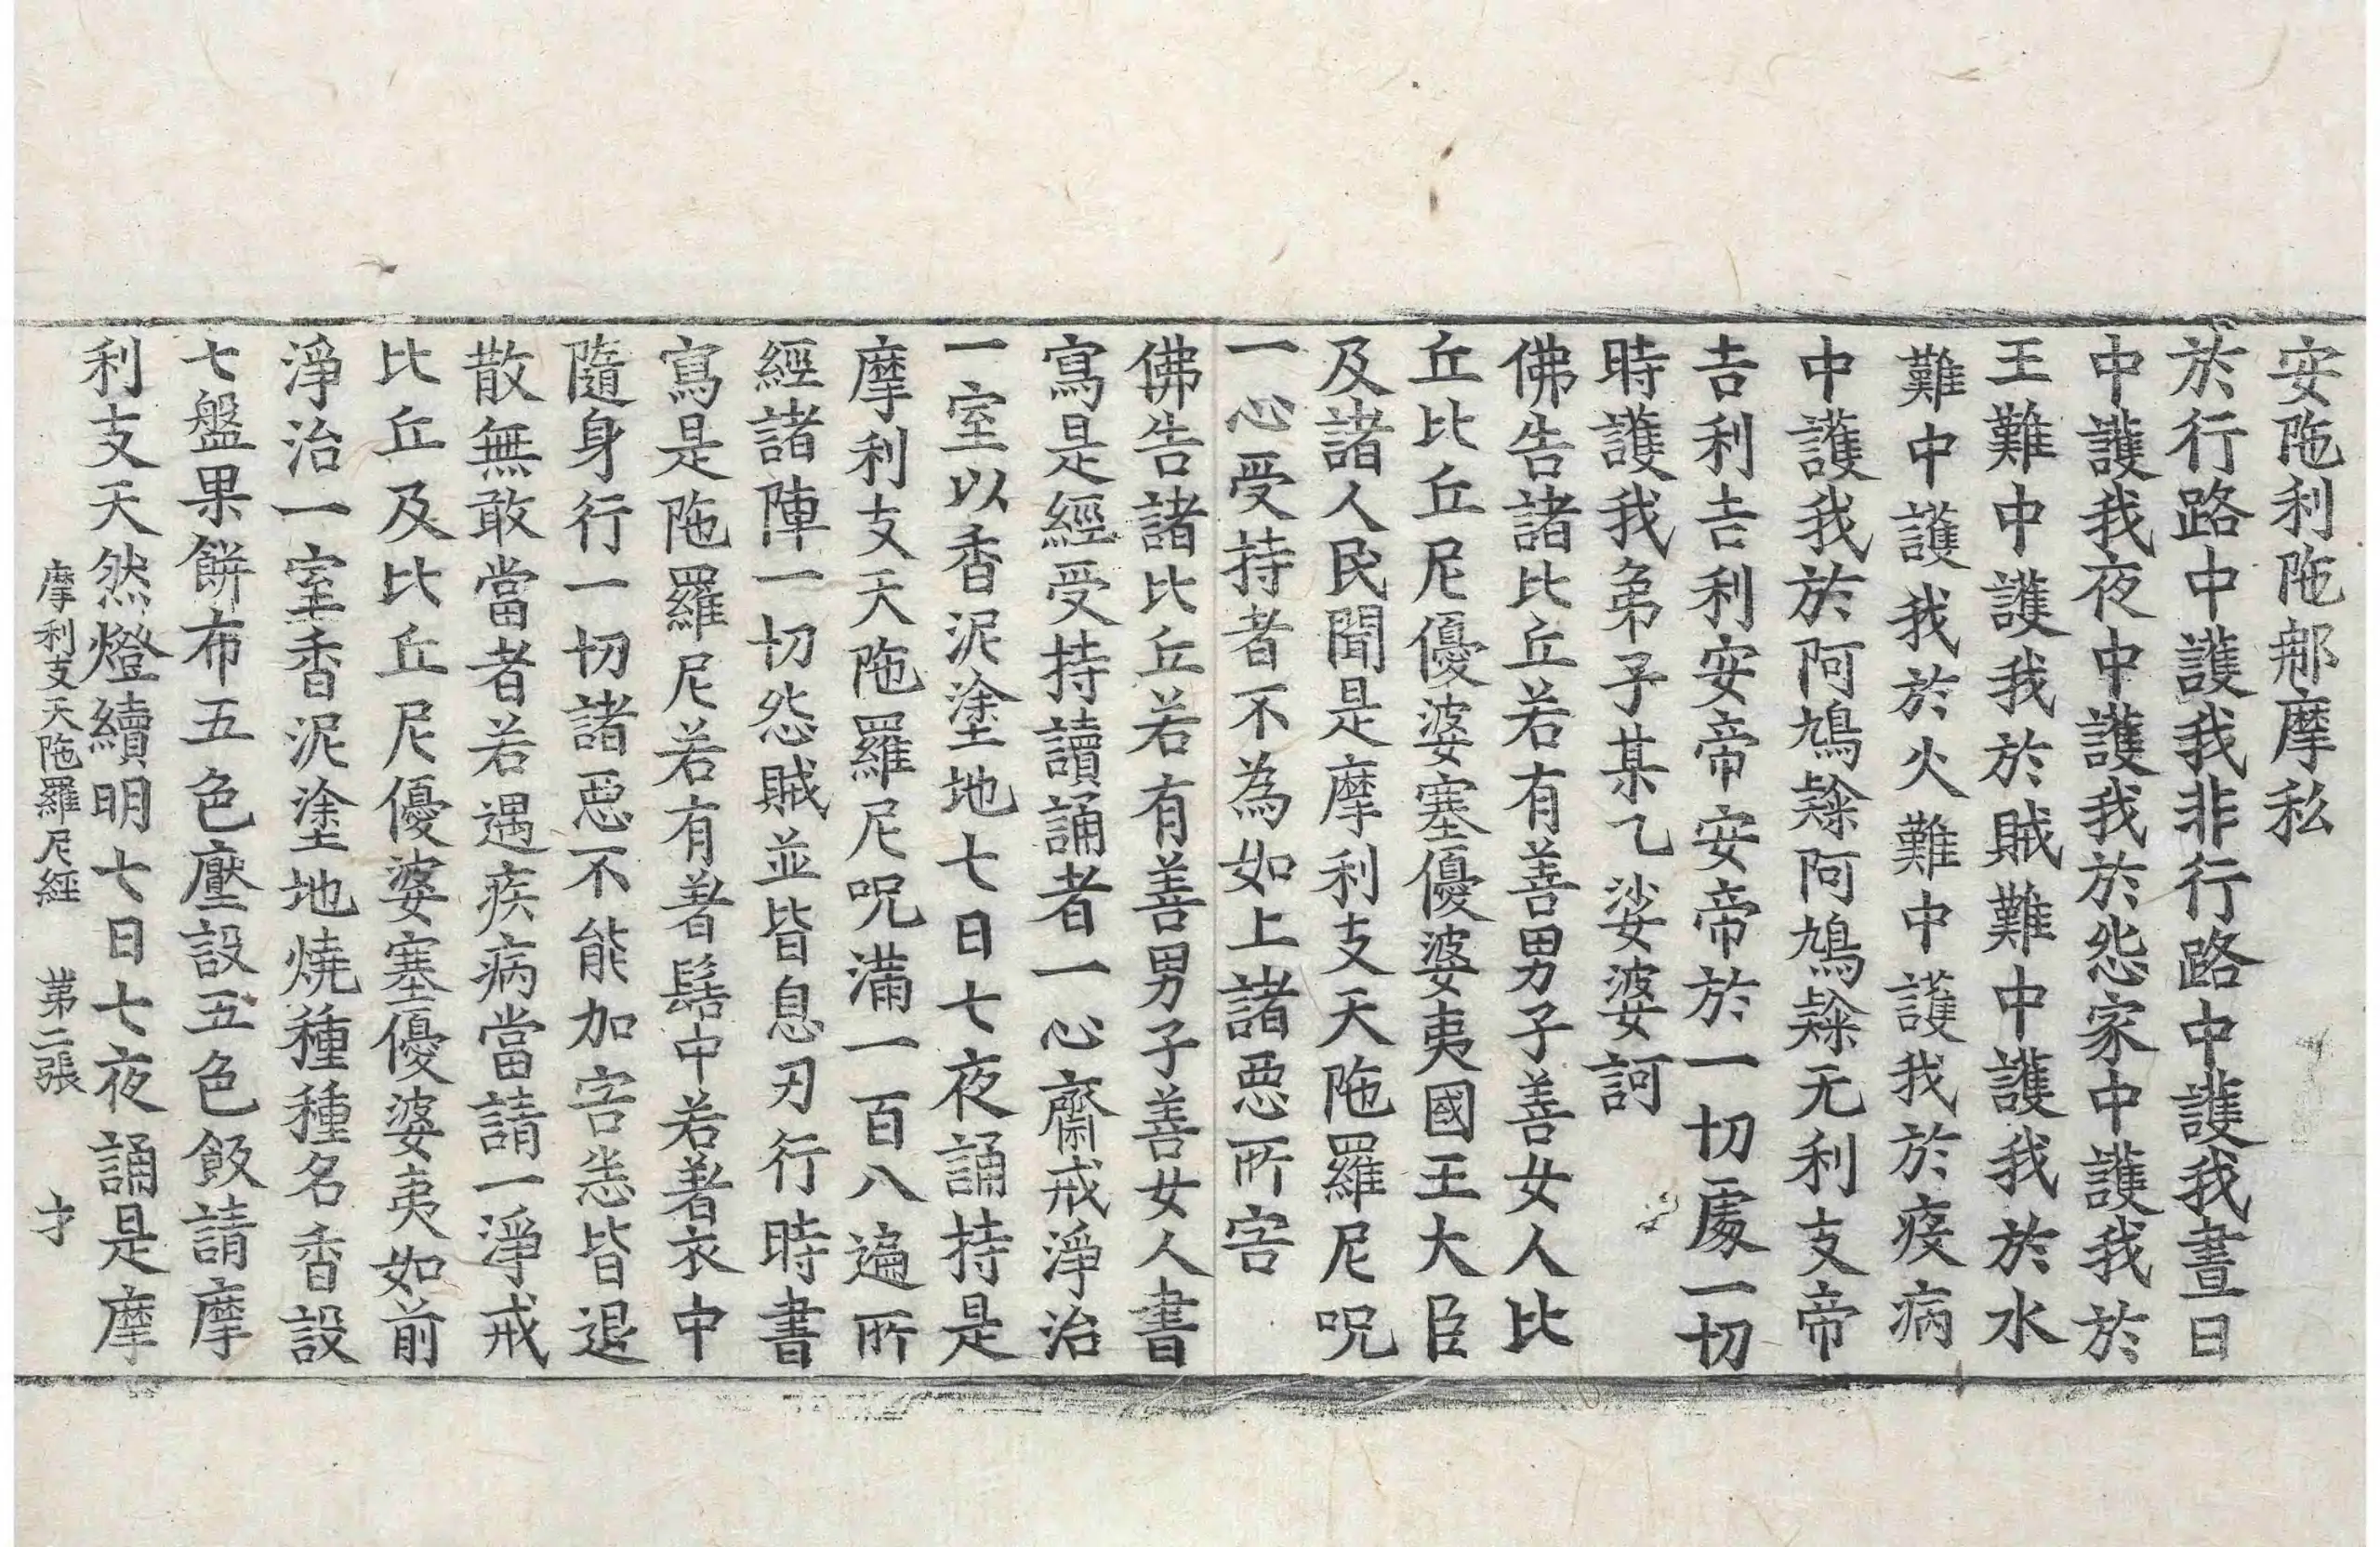 安陁利陁𨚗摩私
於行路中護我非行路中護我晝日
中護我夜中護我於怨家中護我於
王難中護我於賊難中護我於水
難中護我於火難中護我於疫病
中護我於阿鳩隸阿鳩隸无利支帝
吉利吉利安帝安帝於一切處一切
時護我弟子某乙娑婆訶
佛告諸比丘若有善男子善女人比
丘比丘尼優婆塞優婆夷國王大臣
及諸人民聞是摩利支天陁羅尼呪
一心受持者不為如上諸惡所害
佛告諸比丘若有善男子善女人書
寫是經受持讀誦者一心齋戒淨治
一室以香泥塗地七日七夜誦持是
摩利支天陁羅尼呪滿一百八遍所
經諸陣一切怨賊並皆息刃行時書
寫是陁羅尼若有著髻中若著衣中
隨身行一切諸惡不能加害悉皆退
散無敢當者若遇疾病當請一淨戒
比丘及比丘尼優婆塞優婆夷如前
淨治一室香泥塗地燒種種名香設
七盤果餅布五色壓設五色飯請摩
利支天然燈續明七日七夜誦是摩
摩利支天陁羅尼經 第二張 才